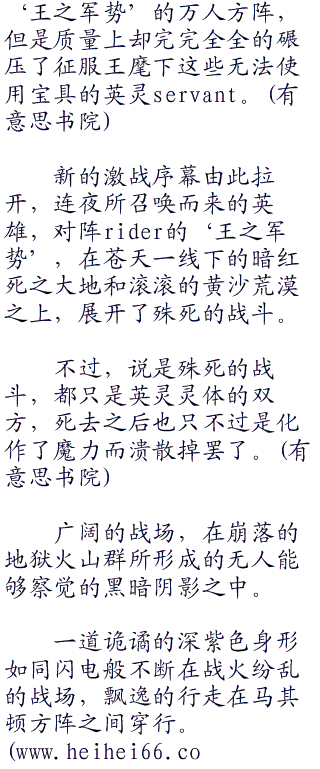 ‘王之军势’的万人方阵，
但是质量上却完完全全的碾
压了征服王麾下这些无法使
用宝具的英灵servant。(有
意思书院)
新的激战序幕由此拉
开，连夜所召唤而来的英
雄，对阵rider的‘王之军
势’，在苍天一线下的暗红
死之大地和滚滚的黄沙荒漠
之上，展开了殊死的战斗。
不过，说是殊死的战
斗，都只是英灵灵体的双
方，死去之后也只不过是化
作了魔力而溃散掉罢了。(有
意思书院)
广阔的战场，在崩落的
地狱火山群所形成的无人能
够察觉的黑暗阴影之中。
一道诡谲的深紫色身形
如同闪电般不断在战火纷乱
的战场，飘逸的行走在马其
顿方阵之间穿行。
(www.heihei66.co